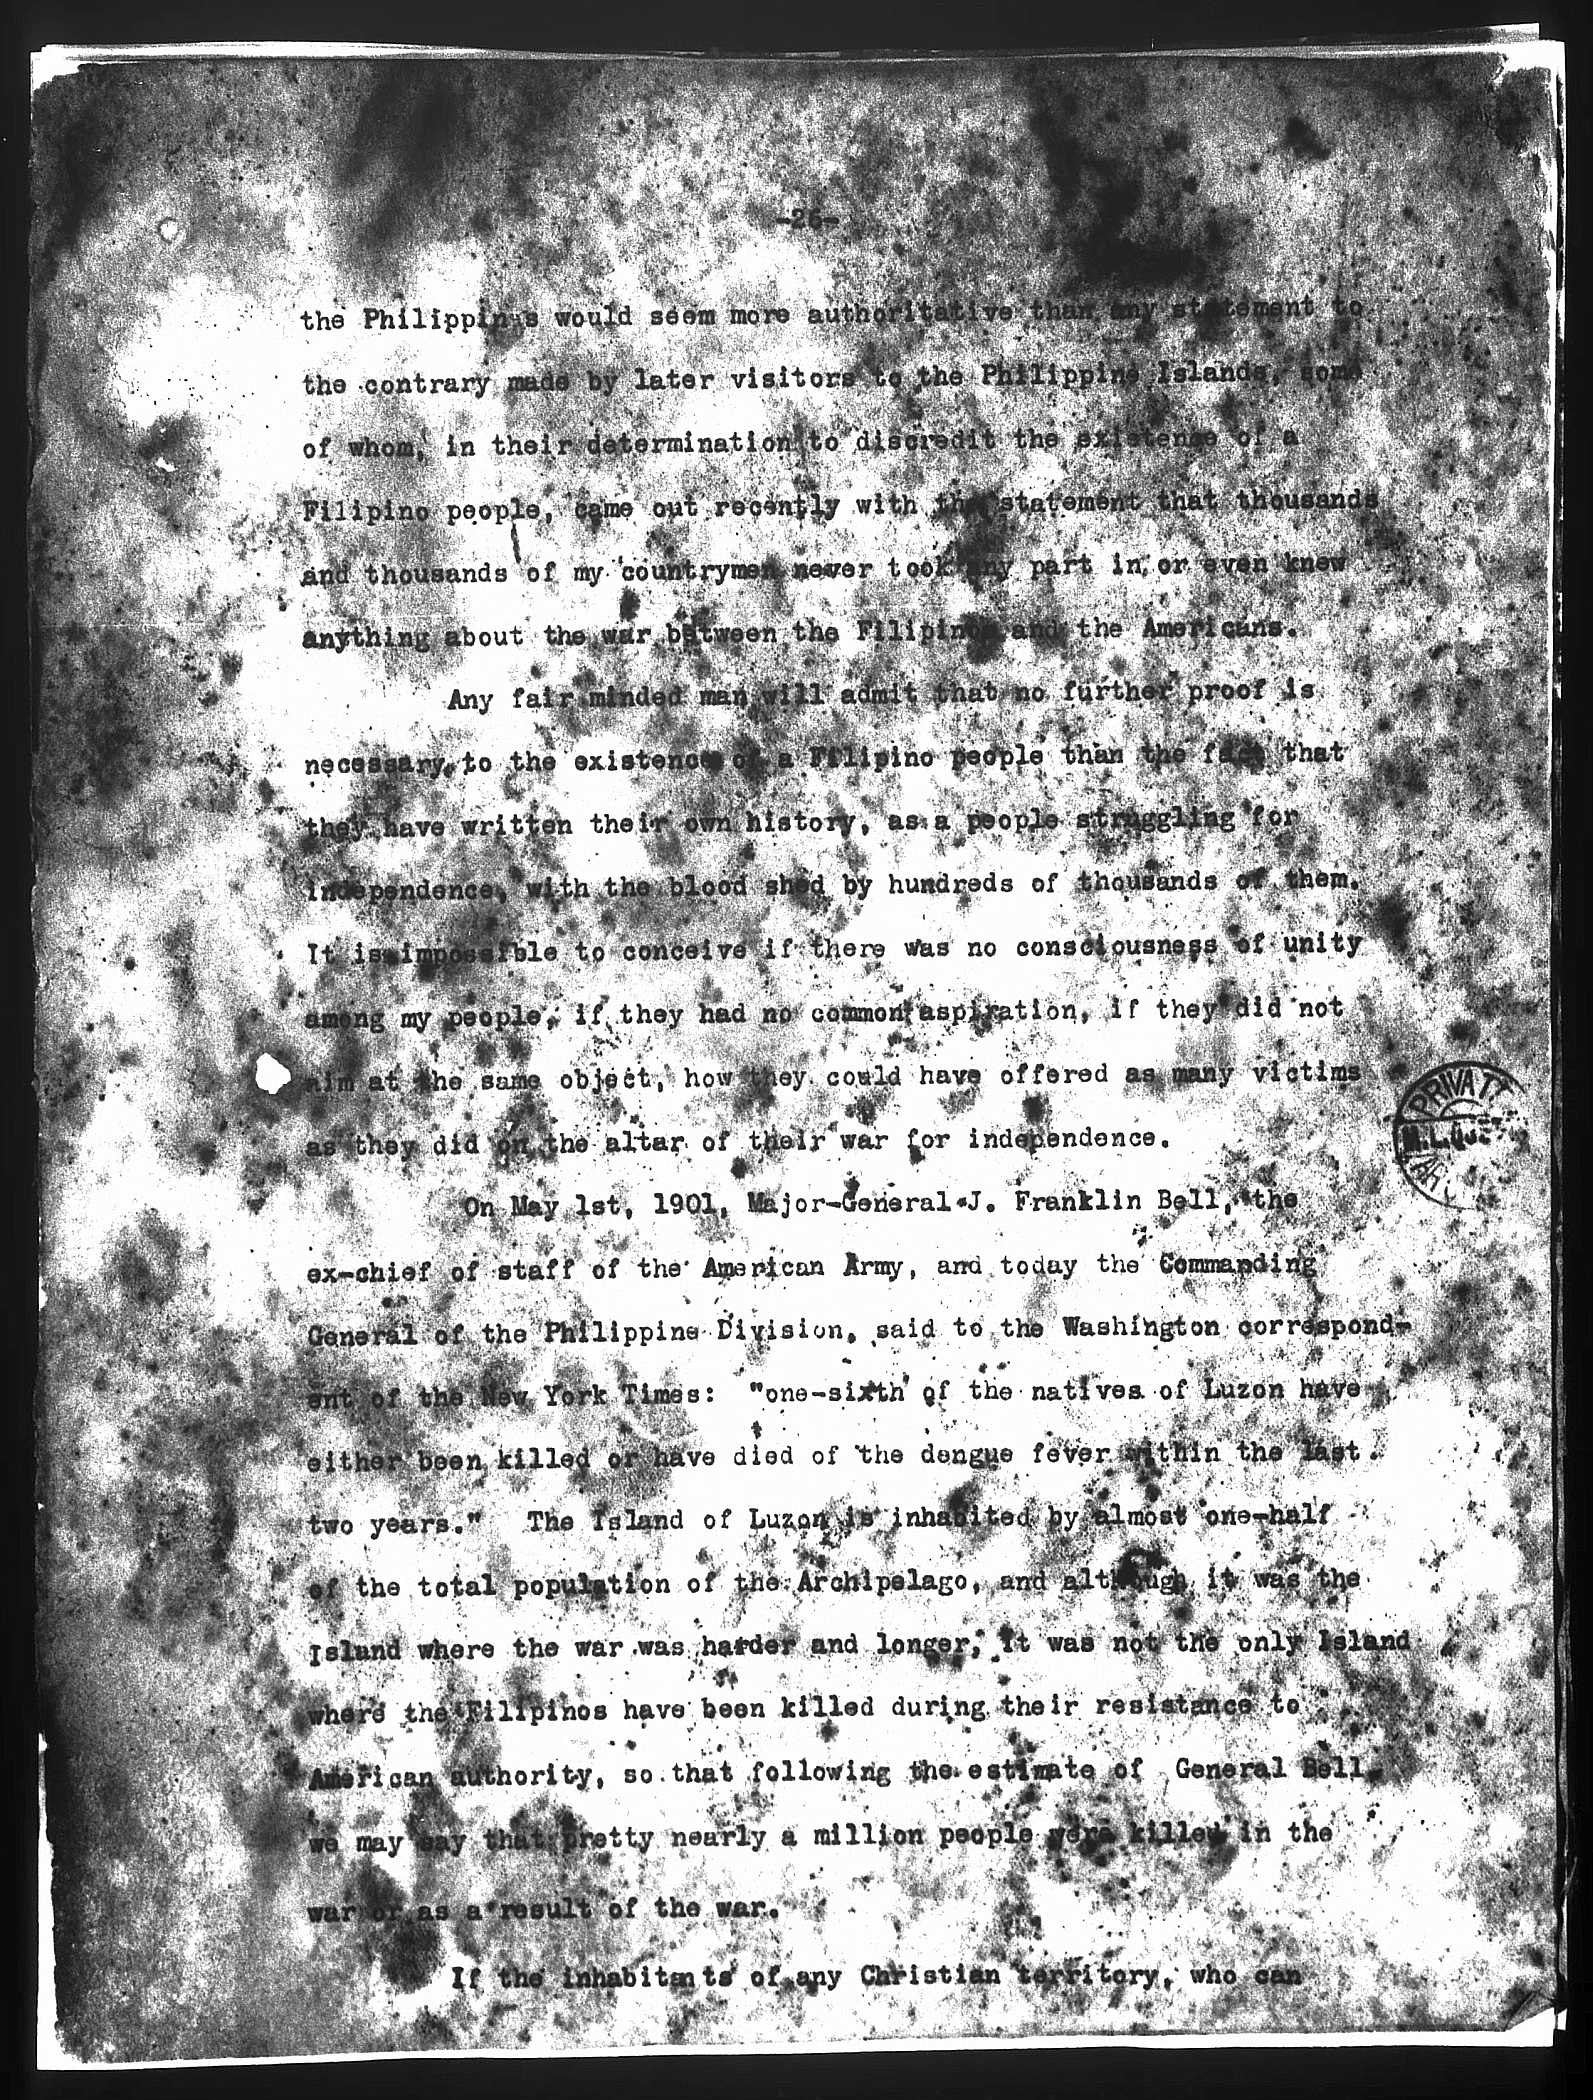 -26-
the Philippines would seem more authoritative than any statement to
the contrary made by later visitors to the Philippine Islands, some
of whom, in their determination to discredit the existence of a
Filipino people, came out recently with the statement that thousands
and thousands of my countrymen never took any part in, or even knew
anything about the war between the Filipinos and the Americans.
Any fair minded man will admit that no further proof is
necessary to the existence of a Filipino people than the fact that
they have written their own history, as a people struggling for
independence, with the blood shed by hundreds of thousands of them.
It is impossible to conceive if there was no consciousness of unity
among my people, if they had no common aspiration, if they did not
aim at the same object, how they could have offered as many victims
as they did on the altar of their war for independence.
On May 1st, 1901, Major-General J. Franklin Bell, the
ex-chief of staff of the American Army, and today the Commanding
General of the Philippine Division, said to the Washington correspond-
ent of the New York Times: "one-sixth of the natives of Luzon have
either been killed or have died of the dengue fever within the last
two years." The Island of Luzon is inhabited by almost one-half
of the total population of the Archipelago, and although it was the
Island where the war was harder and longer, it was not the only Island
where the Filipinos have been killed during their resistance to
American authority, so that following the estimate of General Bell,
we may say that pretty nearly a million people were killed in the
war or as a result of the war.
If the inhabitants of any Christian territory, who can
PRIVATE